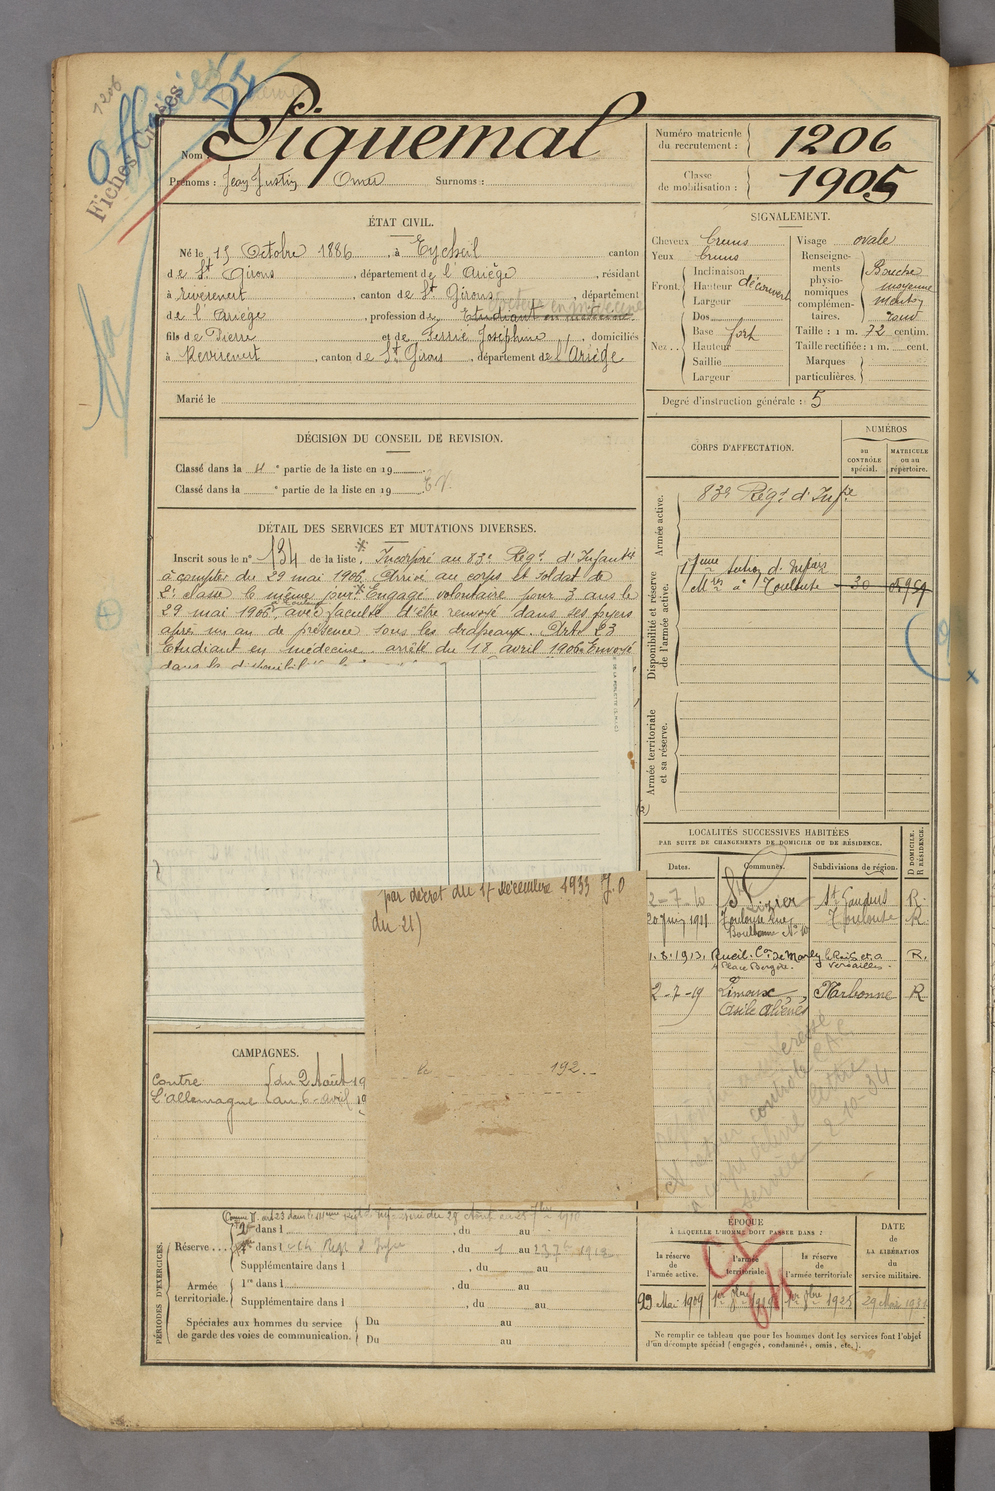 1206
Officier
Fiches Créées
Nom : Piquemal
Prénoms : Jean Justin Omer Surnoms :
Numéro matricule du recrutement : 1206
Classe de mobilisation : 1905
ÉTAT CIVIL.
Né le 15 Octobre 1886, à Eycheil canton
de St Girons, département de l'Ariège, résidant
à Rivèrenert, canton de St Girons, département
de l'Ariège, profession de Etudiant en médecine
Docteur en médecine
fils de Pierre et de Ferrié Joséphine, domiciliés
à Rivèrenert, canton de St Girons, département de l'Ariège
Marié le
SIGNALEMENT.
Cheveux bruns
Yeux bruns
Front. Inclinaison
Hauteur découvert
Largeur
Nez.. Dos
Base fort
Hauteur
Saillie
Largeur
Visage ovale
Renseignements physionomiques complémentaires. Bouche moyenne menton rond
Taille : 1 m. 72 centim.
Taille rectifiée : 1 m. cent.
Marques particulières.
Degré d'instruction générale : 5
DÉCISION DU CONSEIL DE REVISION.
Classé dans la 4e partie de la liste en 19
Classé dans la e partie de la liste en 19
E.V.
DÉTAIL DES SERVICES ET MUTATIONS DIVERSES.
Inscrit sous le n° 134 de la liste. Incorporé au 83e Régt d'Infanterie
à compter du 29 mai 1906. Arrivé au corps et soldat de
2e classe le même jour. Engagé volontaire pour 3 ans le
29 mai 1906, avec faculté d'être renvoyé dans ses foyers
après un an de présence sous les drapeaux. Art. 23
Etudiant en médecine. arrêté du 18 avril 1906. Envoyé
dans la disponibilité le
par décret du 17 décembre 1933 J.O
du 21)
le 192
CORPS D'AFFECTATION.
NUMÉROS
au CONTRÔLE spécial.
MATRICULE ou au répertoire.
Armée active.
83e Régt d'Infie
Disponibilité et réserve de l'armée active.
17eme Section d'Infirs
Mres à Toulouse 30
Armée territoriale et sa réserve.
(2)
LOCALITÉS SUCCESSIVES HABITÉES
PAR SUITE DE CHANGEMENTS DE DOMICILE OU DE RÉSIDENCE.
Dates. Communes. Subdivisions de région. D DOMICILE. R RÉSIDENCE.
2-7-10 St Lizier St Gaudens R.
20 Juin 1911 Toulouse Rue Boulbonne N° 10 Toulouse R.
1.8.1913. Rueil. Con de Marly le Roi S.et.O Versailles. R.
Place Bergère.
2-7-19 Limoux Asile Aliénés Narbonne R
CAMPAGNES.
Contre l'Allemagne
du 2 Août 19
au 6 avril 19
2-10-34
PÉRIODES D'EXERCICES.
Réserve....
1re dans l , du au
2e dans l Régt d'Infie , du 1 au 23 7bre 1912
Supplémentaire dans l , du au
Armée territoriale.
1re dans l , du au
Supplémentaire dans l , du au
Spéciales aux hommes du service de garde des voies de communication.
Du au
Du au
ÉPOQUE
À LAQUELLE L'HOMME DOIT PASSER DANS :
la réserve de l'armée active.
l'armée territoriale.
la réserve de l'armée territoriale
DATE DE LA LIBÉRATION du service militaire.
29 Mai 1909
1er 8bre 1919
1er 8bre 1925
29 Mai 1931
Ne remplir ce tableau que pour les hommes dont les services font l'objet
d'un décompte spécial (engagés, condamnés, omis, etc.).